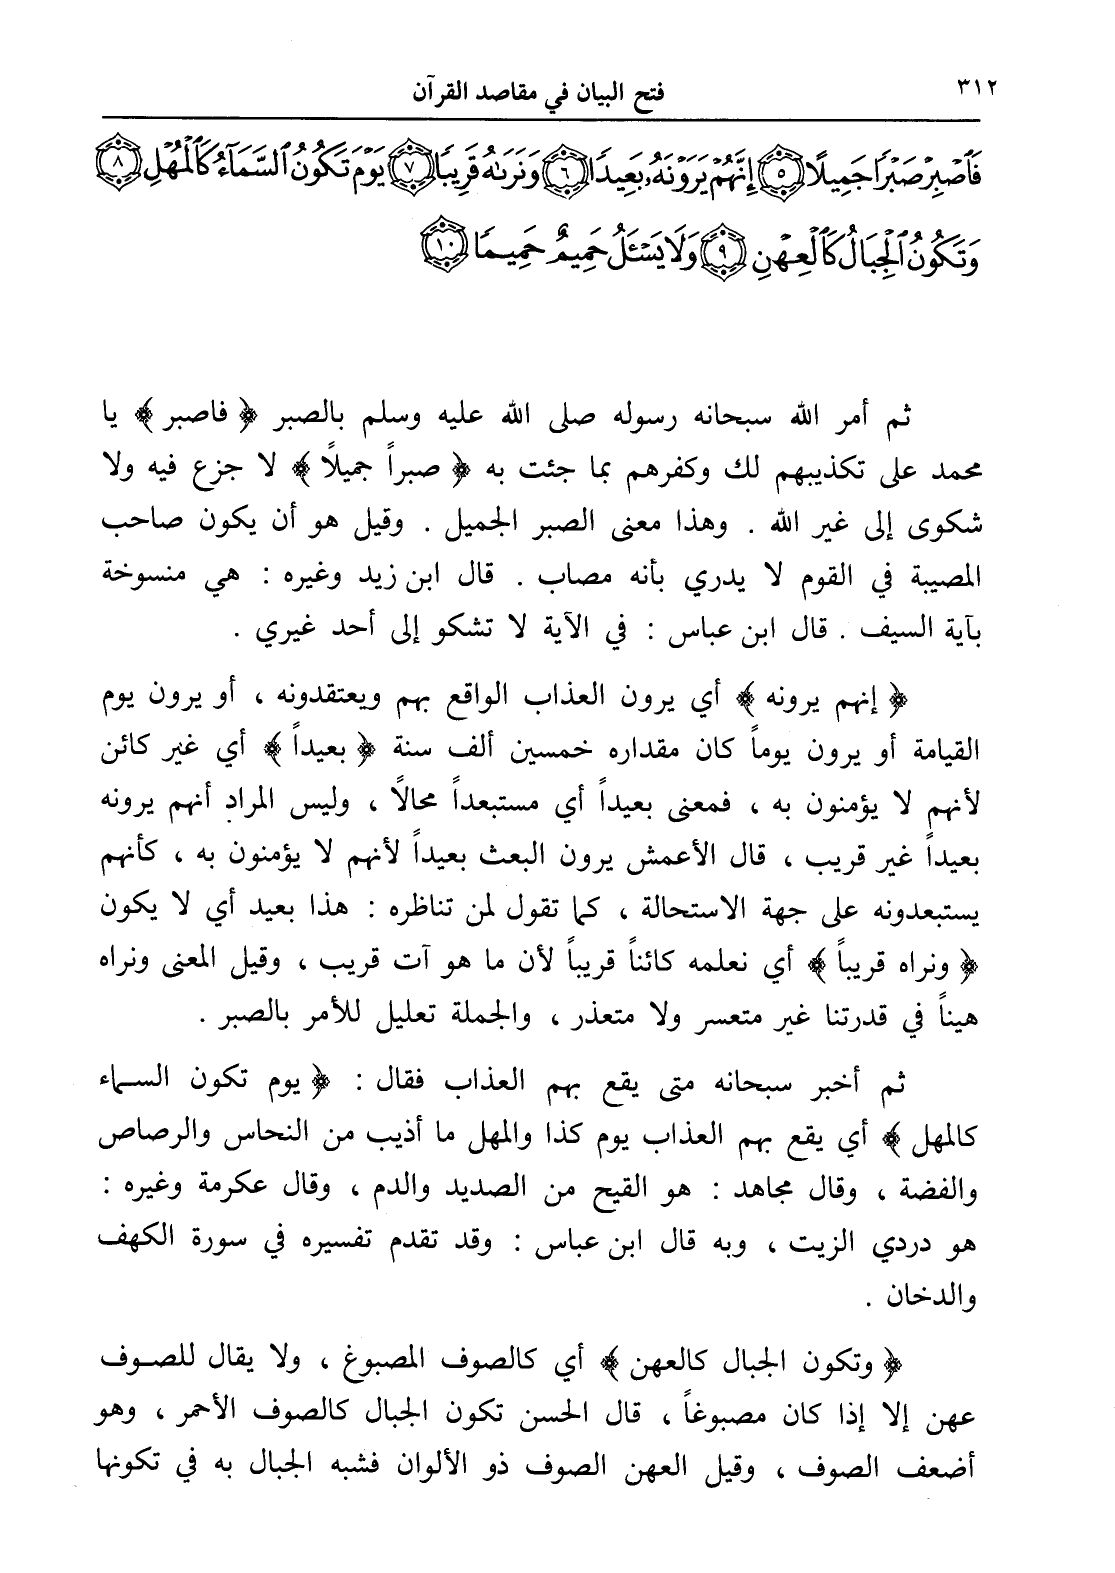 ٣١٢
فتح البيان في مقاصد القرآن
فَٱصۡبِرۡ صَبۡرٗا جَمِيلًا ٥ إِنَّهُمۡ يَرَوۡنَهُۥ بَعِيدٗا ٦ وَنَرَىٰهُ قَرِيبٗا ٧ يَوۡمَ تَكُونُ ٱلسَّمَآءُ كَٱلۡمُهۡلِ ٨
وَتَكُونُ ٱلۡجِبَالُ كَٱلۡعِهۡنِ ٩ وَلَا يَسۡـَٔلُ حَمِيمٌ حَمِيمٗا ١٠
ثم أمر الله سبحانه رسوله صلى الله عليه وسلم بالصبر ﴿ فاصبر ﴾ يا
محمد على تكذيبهم لك وكفرهم بما جئت به ﴿ صبراً جميلاً ﴾ لا جزع فيه ولا
شكوى إلى غير الله . وهذا معنى الصبر الجميل . وقيل هو أن يكون صاحب
المصيبة في القوم لا يدري بأنه مصاب . قال ابن زيد وغيره : هي منسوخة
بآية السيف . قال ابن عباس : في الآية لا تشكو إلى أحد غيري .
﴿ إنهم يرونه ﴾ أي يرون العذاب الواقع بهم ويعتقدونه ، أو يرون يوم
القيامة أو يرون يوماً كان مقداره خمسين ألف سنة ﴿ بعيداً ﴾ أي غير كائن
لأنهم لا يؤمنون به ، فمعنى بعيداً أي مستبعداً محالاً ، وليس المراد أنهم يرونه
بعيداً غير قريب ، قال الأعمش يرون البعث بعيداً لأنهم لا يؤمنون به ، كأنهم
يستبعدونه على جهة الاستحالة ، كما تقول لمن تناظره : هذا بعيد أي لا يكون
﴿ ونراه قريباً ﴾ أي نعلمه كائناً قريباً لأن ما هو آت قريب ، وقيل المعنى ونراه
هيناً في قدرتنا غير متعسر ولا متعذر ، والجملة تعليل للأمر بالصبر .
ثم أخبر سبحانه متى يقع بهم العذاب فقال : ﴿ يوم تكون السماء
كالمهل ﴾ أي يقع بهم العذاب يوم كذا والمهل ما أذيب من النحاس والرصاص
والفضة ، وقال مجاهد : هو القيح من الصديد والدم ، وقال عكرمة وغيره :
هو دردي الزيت ، وبه قال ابن عباس : وقد تقدم تفسيره في سورة الكهف
والدخان .
﴿ وتكون الجبال كالعهن ﴾ أي كالصوف المصبوغ ، ولا يقال للصوف
عهن إلا إذا كان مصبوغاً ، قال الحسن تكون الجبال كالصوف الأحمر ، وهو
أضعف الصوف ، وقيل العهن الصوف ذو الألوان فشبه الجبال به في تكونها